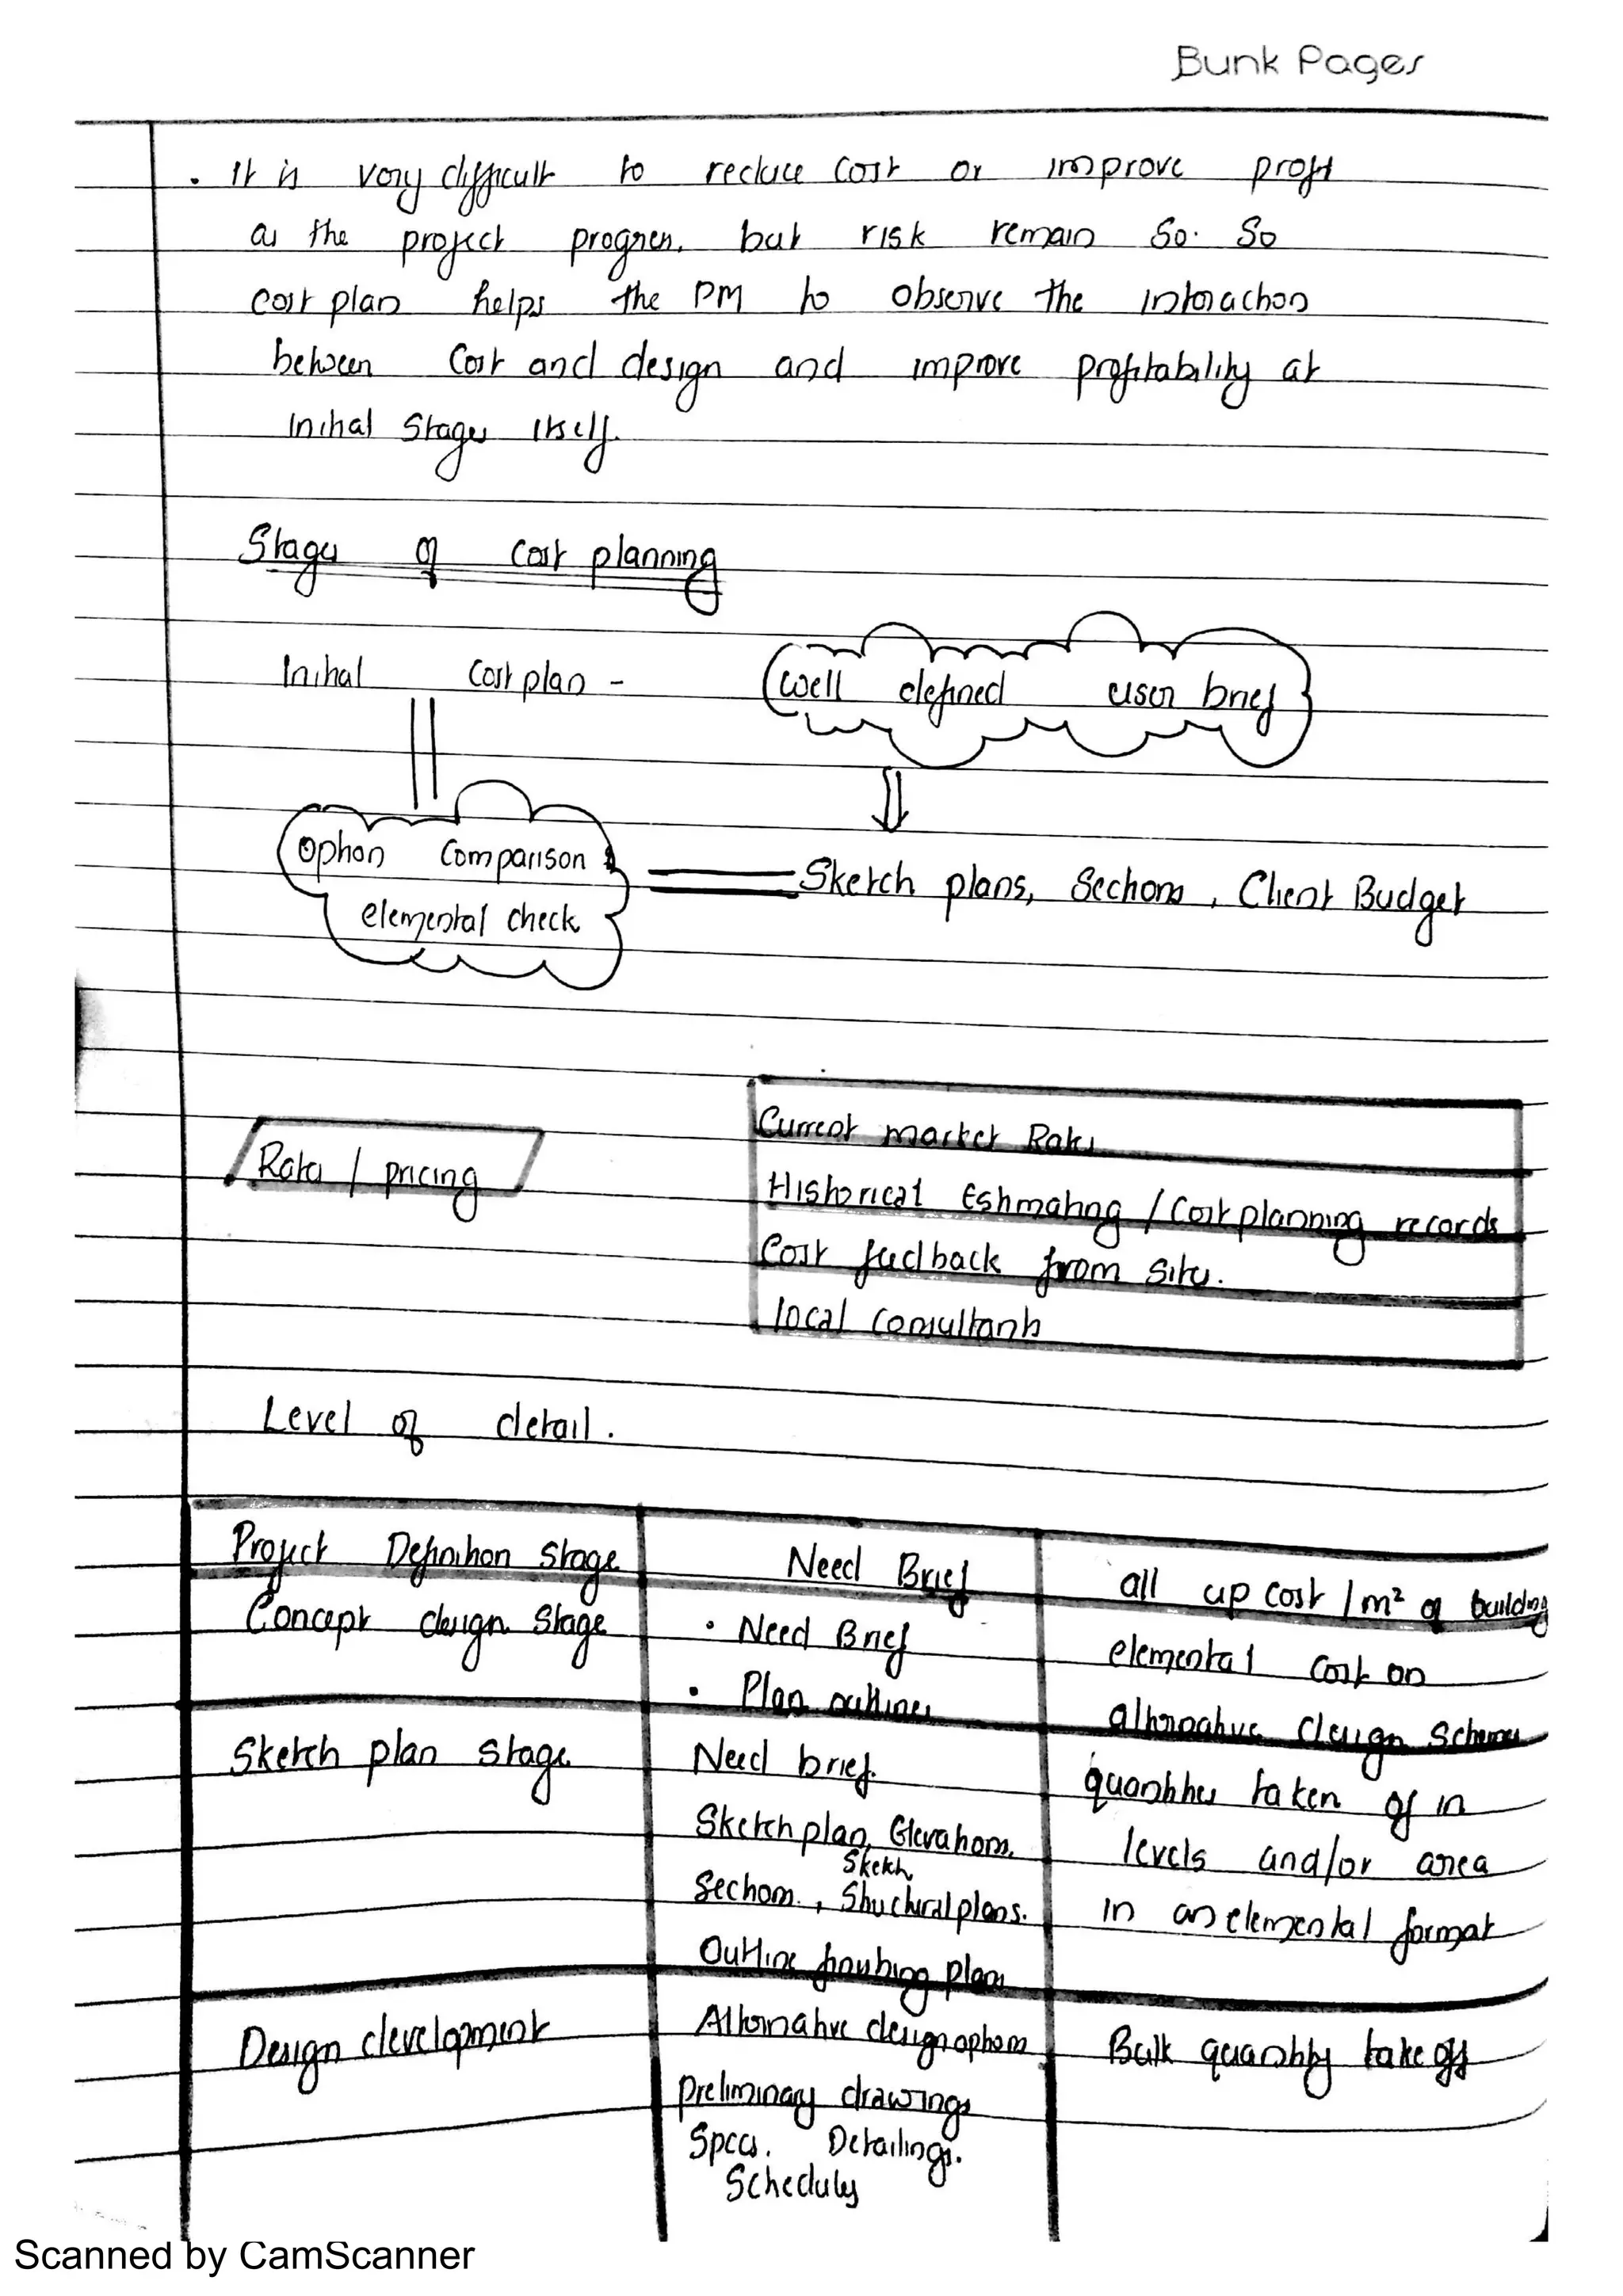 Bunk Pages
. It is very difficult to reduce cost or improve profit
as the project progress. but risk remain so. So
cost plan helps the PM to observe the interaction
between cost and design and improve profitability at
initial stages itself.
Stages of cost planning
Initial cost plan -
Well defined user brief
Option comparison
elemental check
Sketch plans, Sections, Client Budget
Rates / pricing
Current market Rates
Historical Estimating / Cost planning records
Cost feedback from sites.
local consultants
Level of detail.
Project Definition Stage
Need Brief
all up cost / m² of building
Concept design stage
• Need Brief
• Plan outlines
elemental cost on
alternative design schemes
Sketch plan stage
Need brief.
Sketch plan, Elevations,
Sketch
Sections, Structural plans.
Outline plans
quantities taken of in
levels and/or area
in an elemental format
Design development
Alternative design options
preliminary drawings
Specs. Detailings.
Schedules
Bulk quantity take off
Scanned by CamScanner